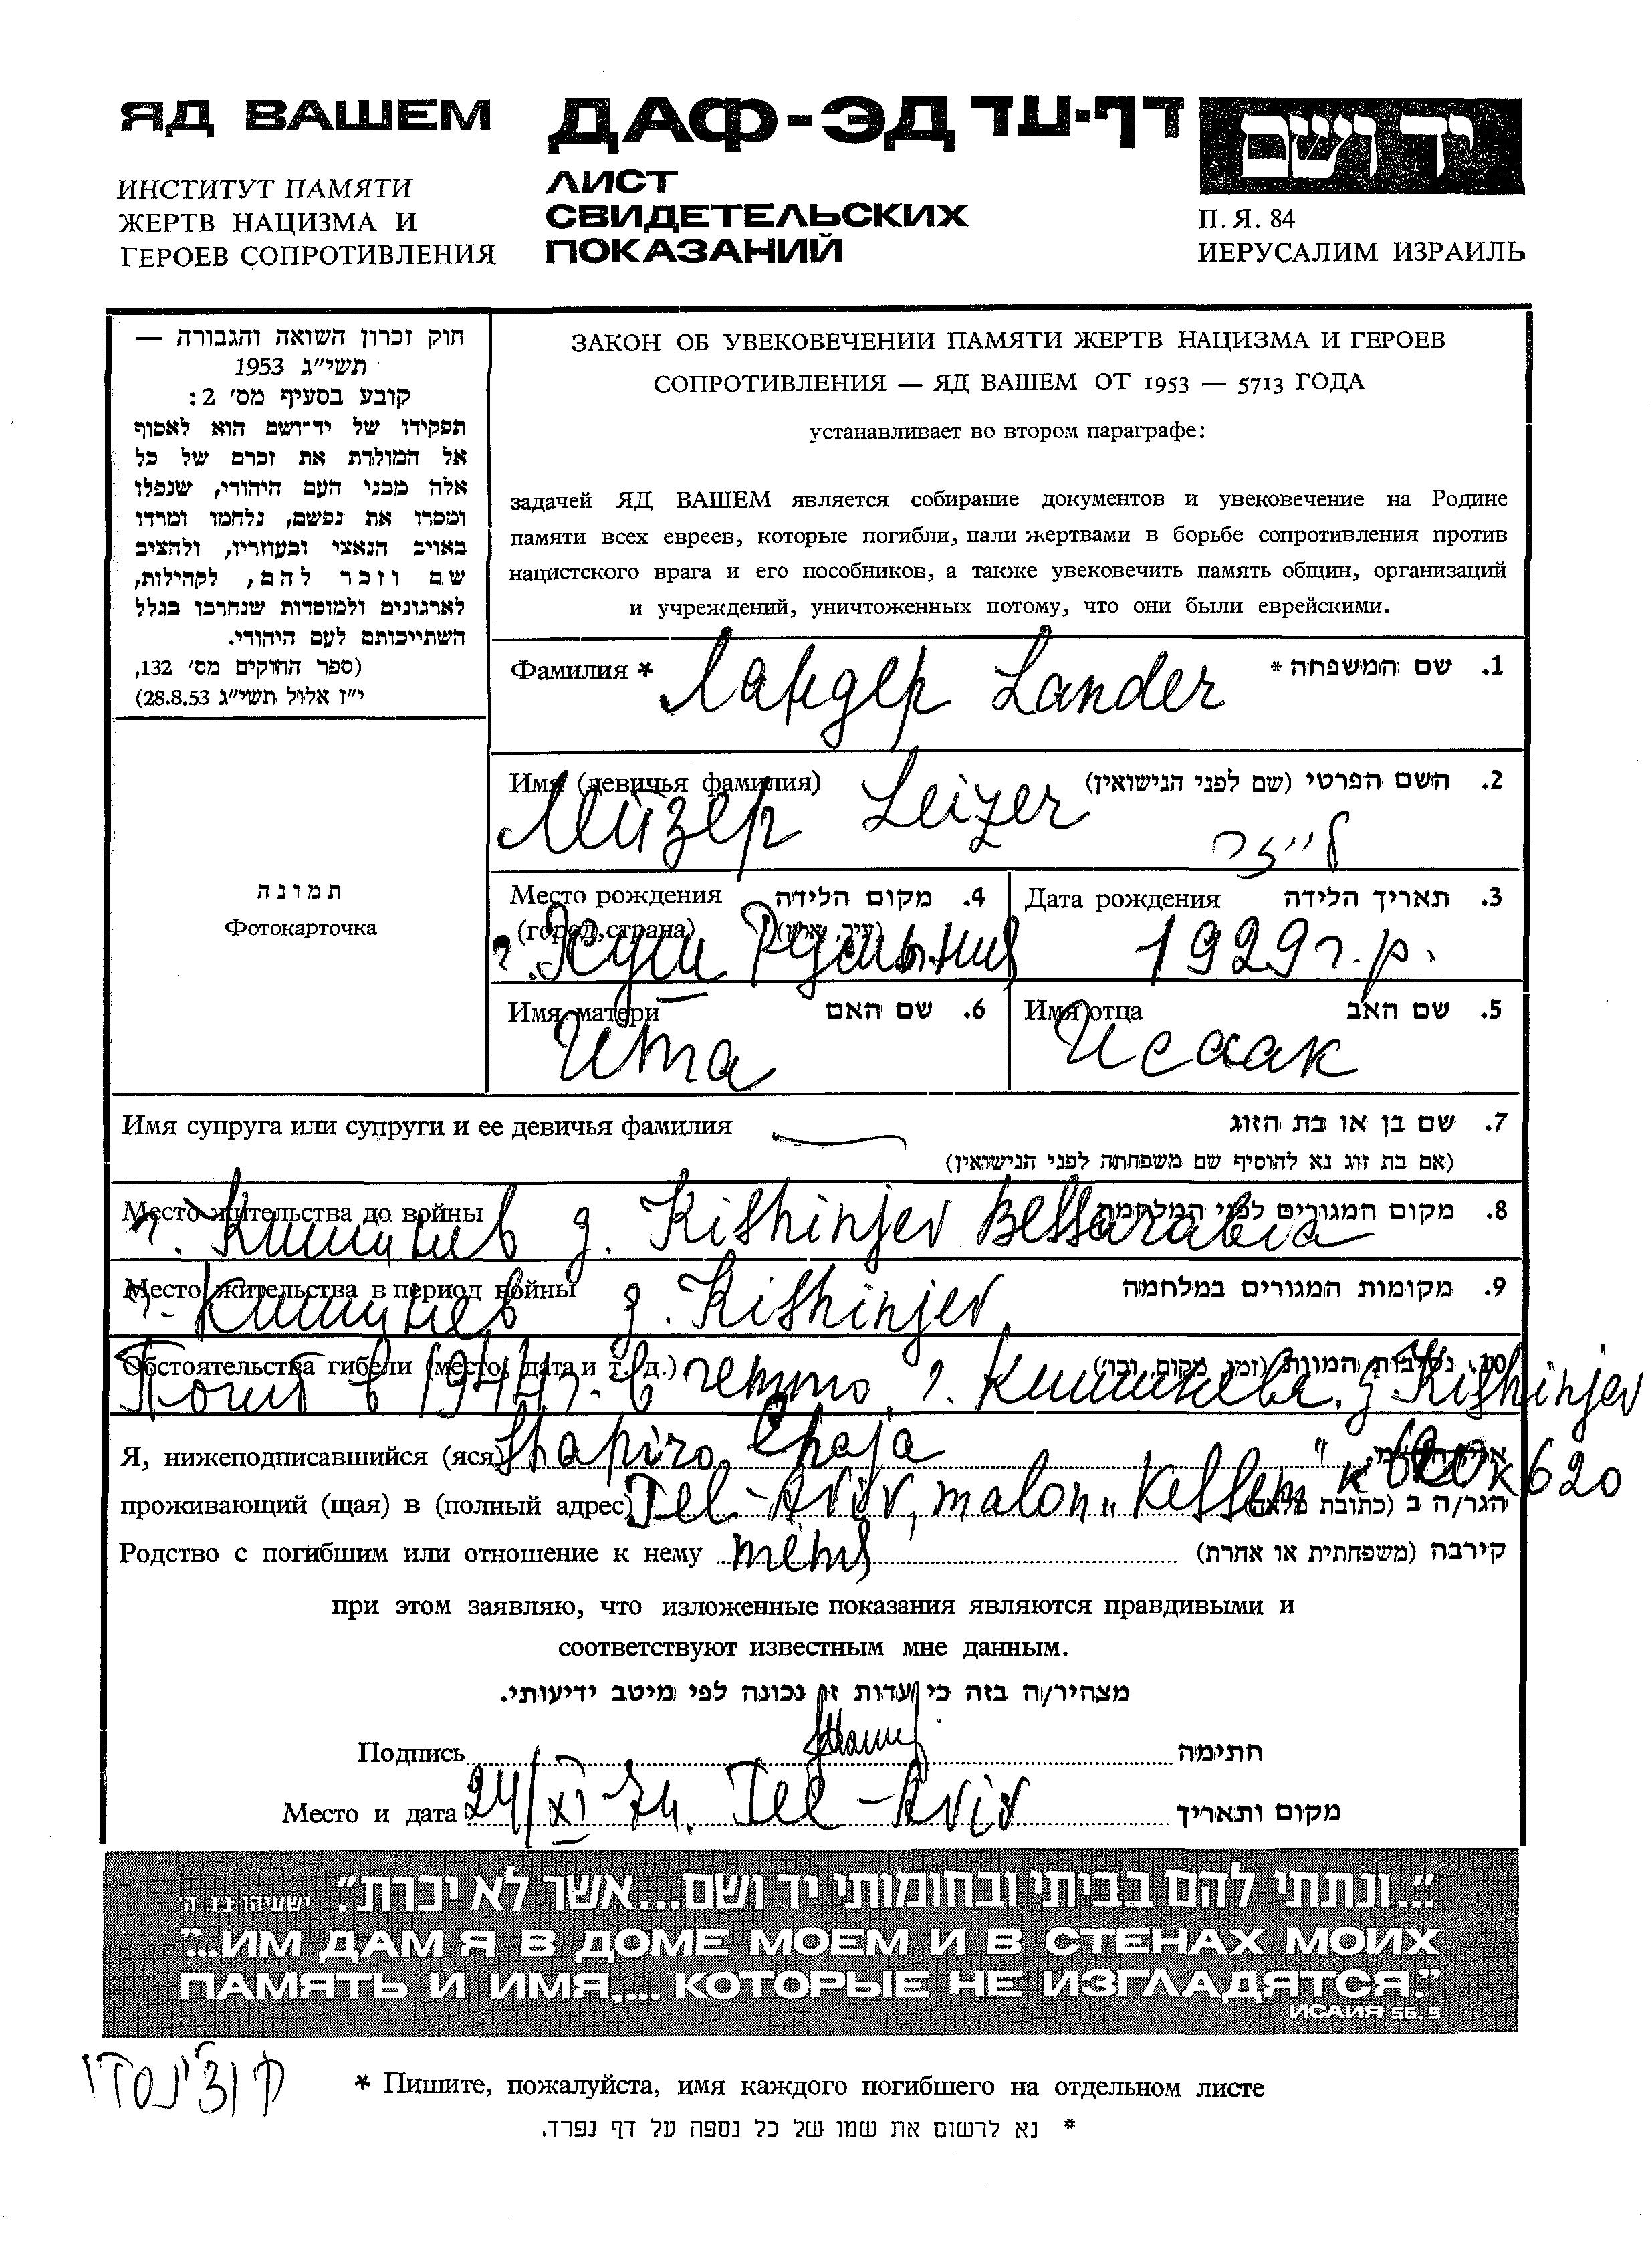 ЯД ВАШЕМ
ИНСТИТУТ ПАМЯТИ
ЖЕРТВ НАЦИЗМА И
ГЕРОЕВ СОПРОТИВЛЕНИЯ
ДАФ-ЭД דף-עד
ЛИСТ
СВИДЕТЕЛЬСКИХ
ПОКАЗАНИЙ
יד ושם
П. Я. 84
ИЕРУСАЛИМ ИЗРАИЛЬ
חוק זכרון השואה והגבורה —
תשי״ג 1953
קובע בסעיף מס׳ 2:
תפקידו של יד־ושם הוא לאסוף
אל המולדת את זכרם של כל
אלה מבני העם היהודי, שנפלו
ומסרו את נפשם, נלחמו ומרדו
באויב הנאצי ובעוזריו, ולהציב
שם וזכר להם, לקהילות,
לארגונים ולמוסדות שנחרבו בגלל
השתייכותם לעם היהודי.
(ספר החוקים מס׳ 132,
י״ז אלול תשי״ג 28.8.53)
תמונה
Фотокарточка
ЗАКОН ОБ УВЕКОВЕЧЕНИИ ПАМЯТИ ЖЕРТВ НАЦИЗМА И ГЕРОЕВ
СОПРОТИВЛЕНИЯ — ЯД ВАШЕМ ОТ 1953 — 5713 ГОДА
устанавливает во втором параграфе:
задачей ЯД ВАШЕМ является собирание документов и увековечение на Родине
памяти всех евреев, которые погибли, пали жертвами в борьбе сопротивления против
нацистского врага и его пособников, а также увековечить память общин, организаций
и учреждений, уничтоженных потому, что они были еврейскими.
Фамилия * Ландер Lander 1. שם המשפחה *
Имя (девичья фамилия) 2. השם הפרטי (שם לפני הנישואין)
Лейзер Leizer לייזר
Место рождения 4. מקום הלידה
(город, страна) (עיר, ארץ)
г. Хуши Румыния
Дата рождения 3. תאריך הלידה
1929 г.р.
Имя матери 6. שם האם
Ита
Имя отца 5. שם האב
Исаак
Имя супруга или супруги и ее девичья фамилия 7. שם בן או בת הזוג
(אם בת זוג נא להוסיף שם משפחתה לפני הנישואין)
Место жительства до войны 8. מקום המגורים לפני המלחמה
г. Кишинев g. Kishinjev Bessarabia
Место жительства в период войны 9. מקומות המגורים במלחמה
г. Кишинев g. Kishinjev
Обстоятельства гибели (место, дата и т. д.) 10. נסיבות המוות (זמן, מקום, וכו׳)
Погиб в 1941 г. в гетто, г. Кишинева. g. Kishinjev
Я, нижеподписавшийся (яся) Shapiro Chaja
проживающий (щая) в (полный адрес) Tel-Aviv, malon „Kessem" к 620 הגר/ה ב (כתובת מלאה)
Родство с погибшим или отношение к нему тетя קירבה (משפחתית או אחרת)
при этом заявляю, что изложенные показания являются правдивыми и
соответствуют известным мне данным.
מצהיר/ה בזה כי עדות זו נכונה לפי מיטב ידיעותי.
Подпись חתימה
Место и дата 24/XI-74. Tel-Aviv מקום ותאריך
"...ונתתי להם בביתי ובחומותי יד ושם...אשר לא יכרת." ישעיהו נ״ו ה׳
"...ИМ ДАМ Я В ДОМЕ МОЕМ И В СТЕНАХ МОИХ
ПАМЯТЬ И ИМЯ,... КОТОРЫЕ НЕ ИЗГЛАДЯТСЯ."
ИСАИЯ 56. 5
* Пишите, пожалуйста, имя каждого погибшего на отдельном листе
* נא לרשום את שמו של כל נספה על דף נפרד.